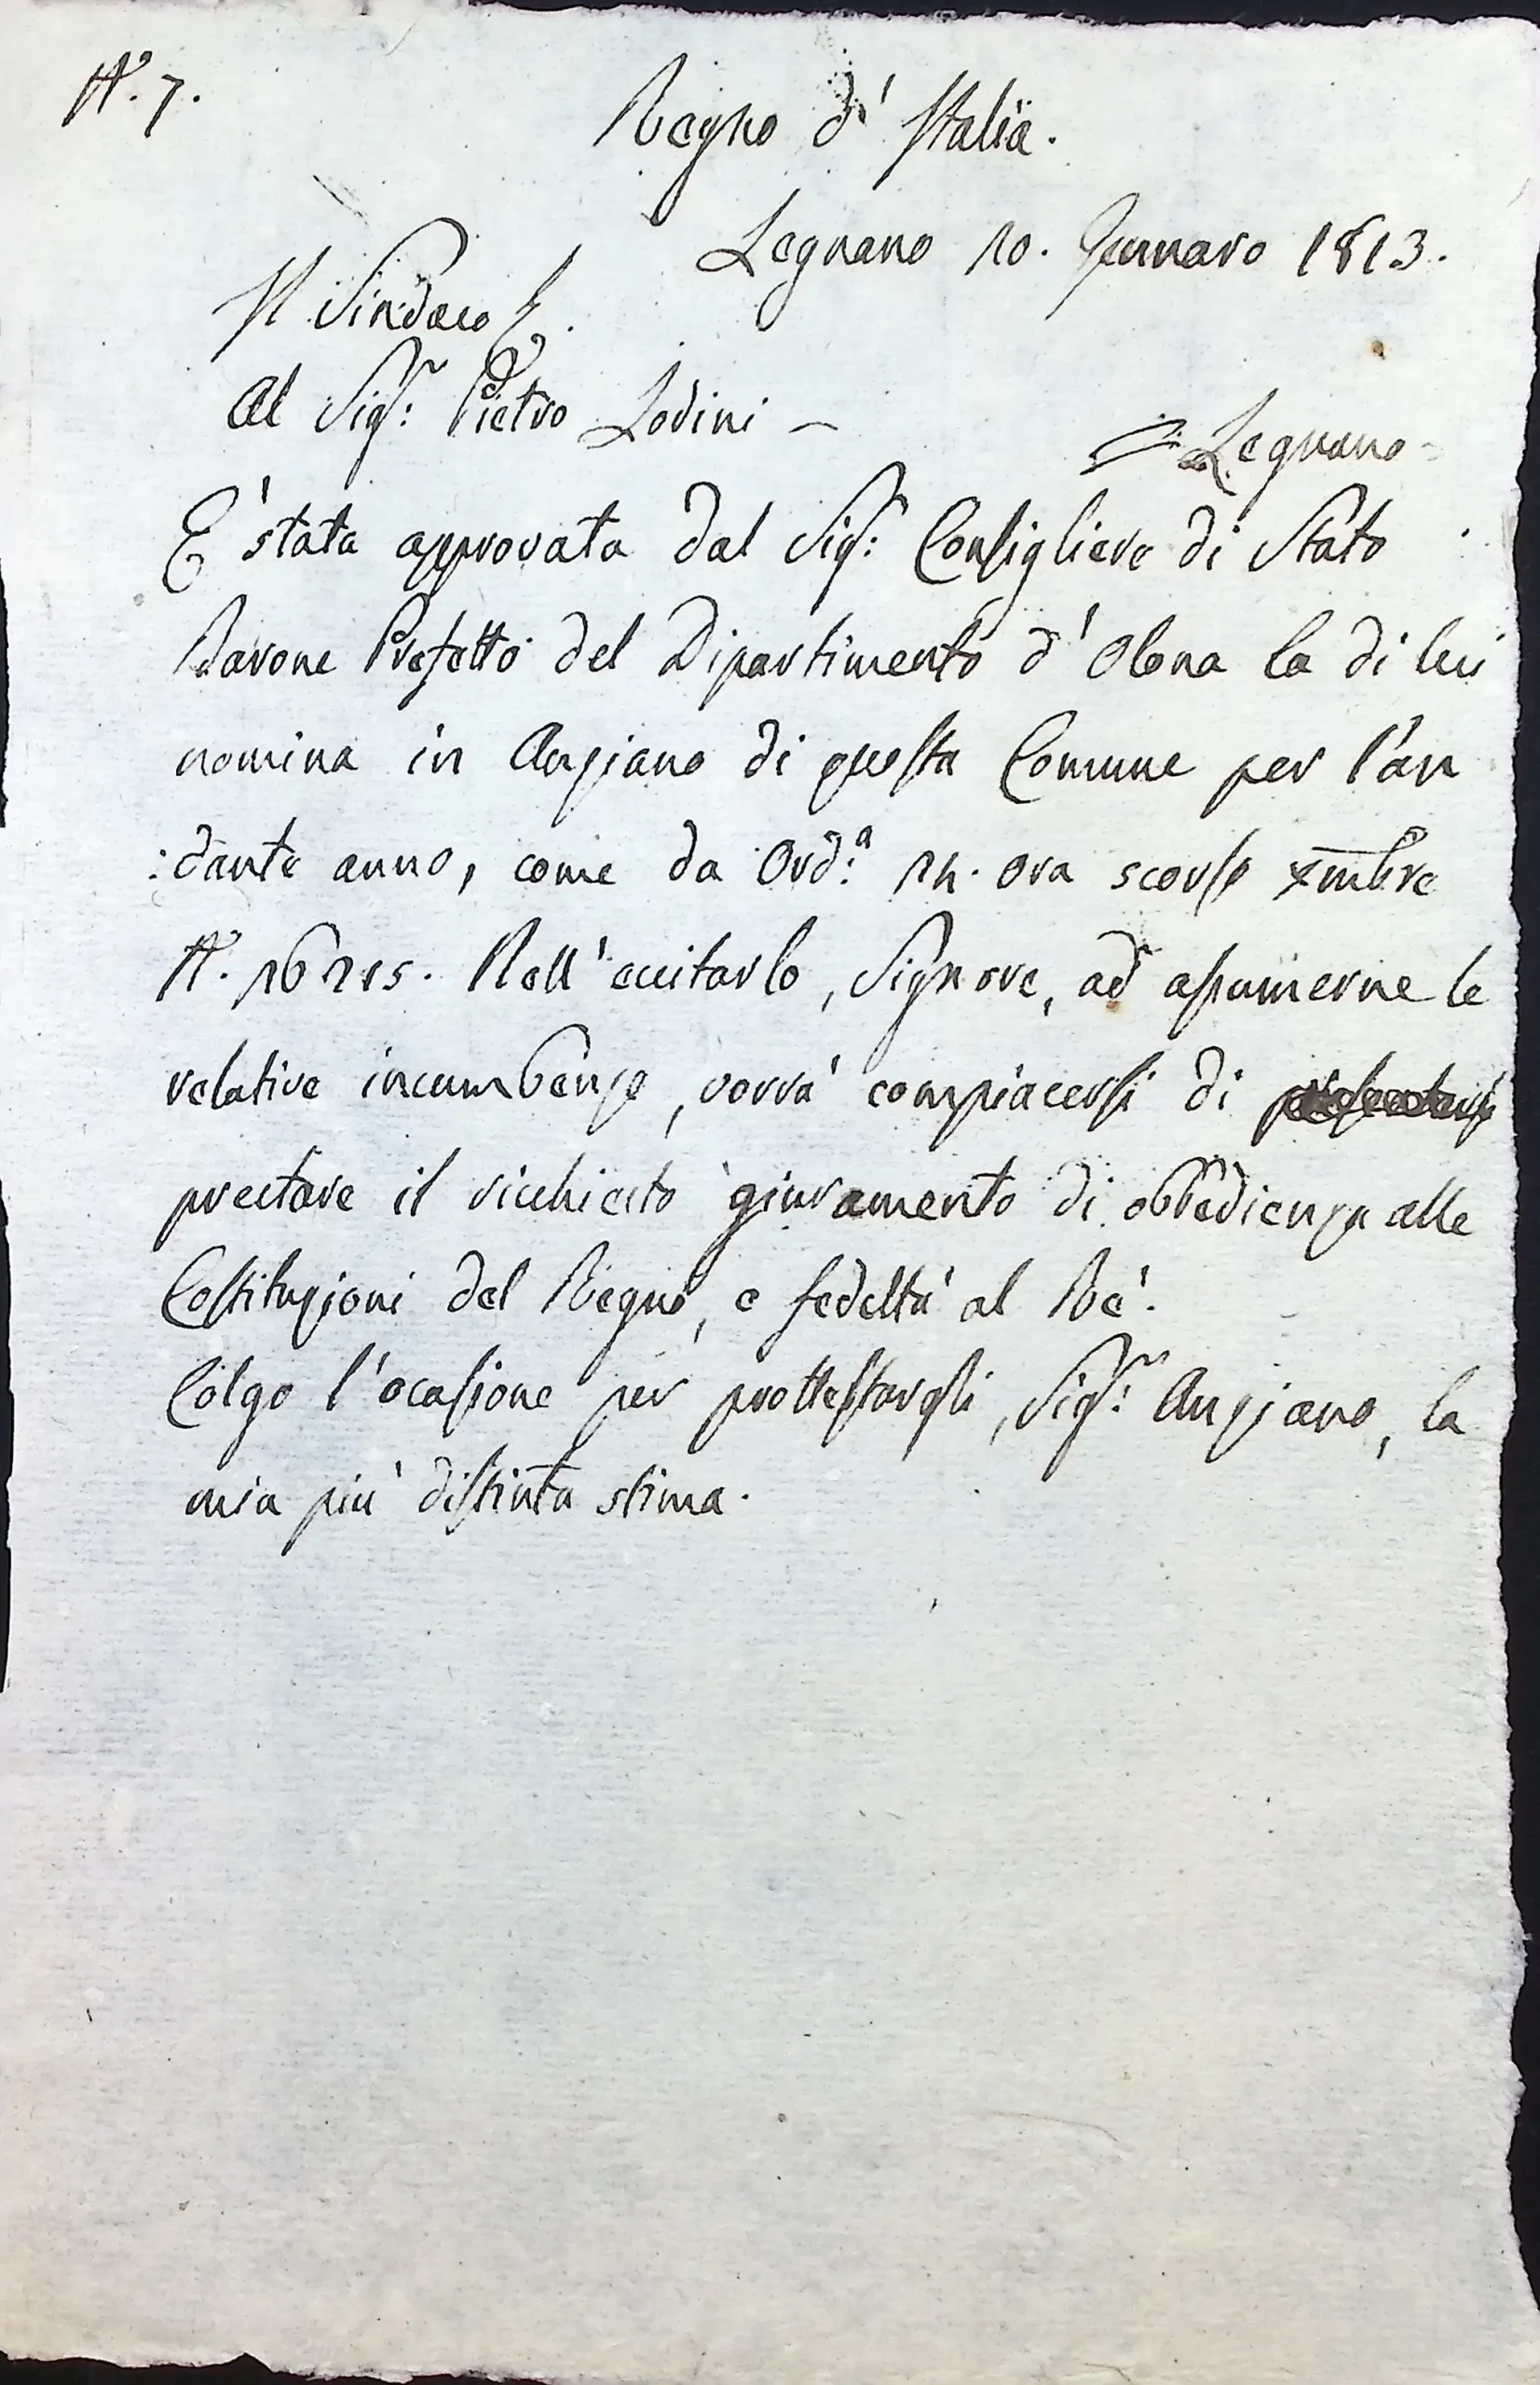 N.º 7.
Regno d'Italia.
Legnano 10. Gennaro 1813.
Il Sindaco
Al Sig.r Pietro Lodini –
Legnano –
E' stata approvata dal Sig.r Consigliere di Stato
Barone Prefetto del Dipartimento d'Olona la di lui
nomina in Anziano di questa Comune per l'an
:dante anno, come da Ord.a 14. ora scorso xmbre
N.º Nell'eccitarlo, Signore, ad assumerne le
relative incumbenze, vorrà compiacersi di
prestare il richiesto giuramento di obbedienza alle
Costituzioni del Regno, e fedeltà al Rè.
Colgo l'ocasione per prottestargli, Sig.r Anziano, la
mia più distinta stima.